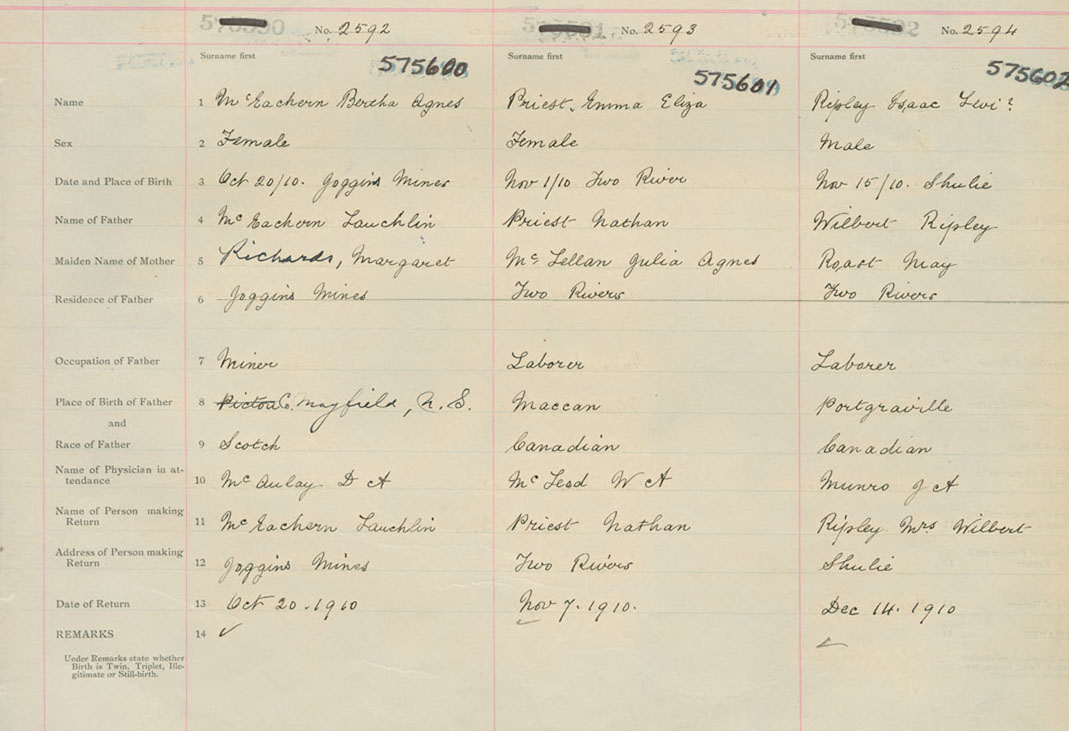 575590 No. 2592 575591 No. 2593 575592 No. 2594
Surname first Surname first Surname first
575600 575601 575602
Name 1 McEachern Bertha Agnes Priest, Emma Eliza Ripley Isaac
Sex 2 Female Female Male
Date and Place of Birth 3 Oct 20/10. Joggins Mines Nov 1/10 Two River Nov 15/10. Shulie
Name of Father 4 McEachern Lauchlin Priest Nathan Wilbert Ripley
Maiden Name of Mother 5 Richards, Margaret McLellan Julia Agnes Roast May
Residence of Father 6 Joggins Mines Two Rivers Two Rivers
Occupation of Father 7 Miner Laborer Laborer
Place of Birth of Father 8 Pictou Co. Mayfield, N. S. Maccan Portgraville
and
Race of Father 9 Scotch Canadian Canadian
Name of Physician in at-
tendance 10 McAulay D A McLeod W A Munro J A
Name of Person making
Return 11 McEachern Lauchlin Priest Nathan Ripley Mrs Wilbert
Address of Person making
Return 12 Joggins Mines Two Rivers Shulie
Date of Return 13 Oct 20-1910 Nov 7-1910. Dec 14-1910
REMARKS 14 ✓ ✓
Under Remarks state whether
Birth is Twin, Triplet, Ille-
gitimate or Still-birth.